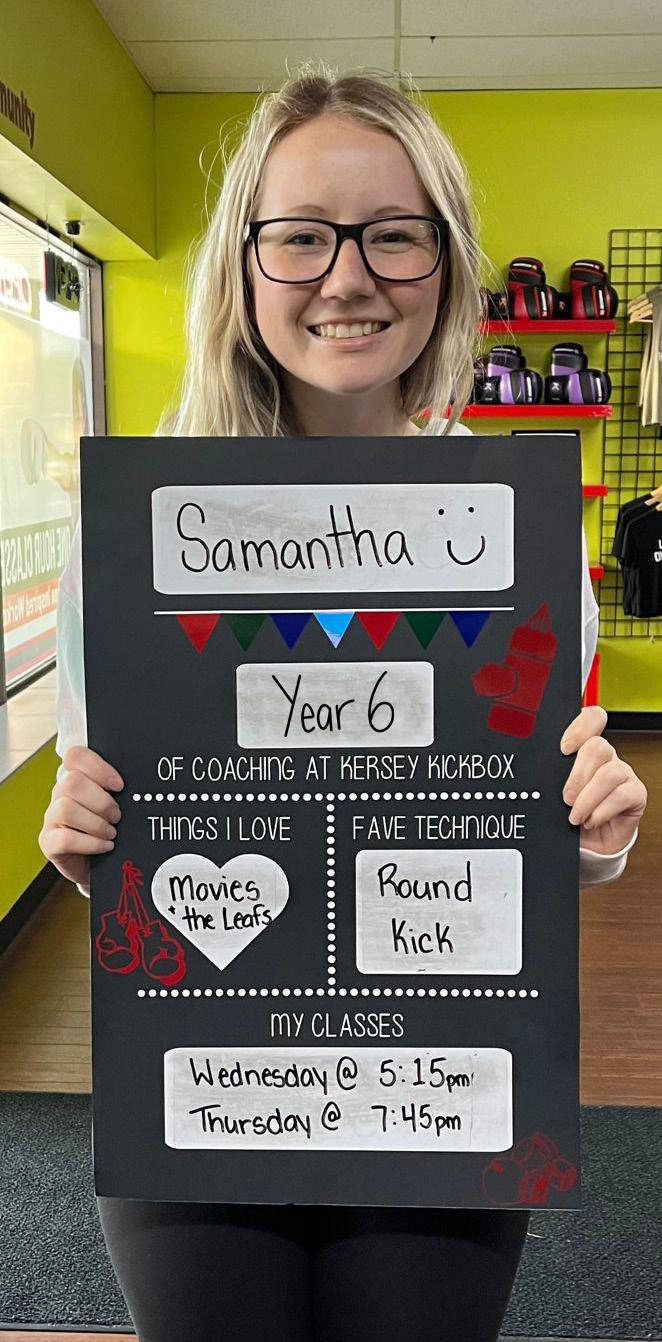 munity
Samantha
Year 6
OF COACHING AT KERSEY KICKBOX
THINGS I LOVE
Movies
+ the Leafs
FAVE TECHNIQUE
Round
Kick
MY CLASSES
Wednesday @ 5:15pm
Thursday @ 7:45pm
ONE HOUR CLASS